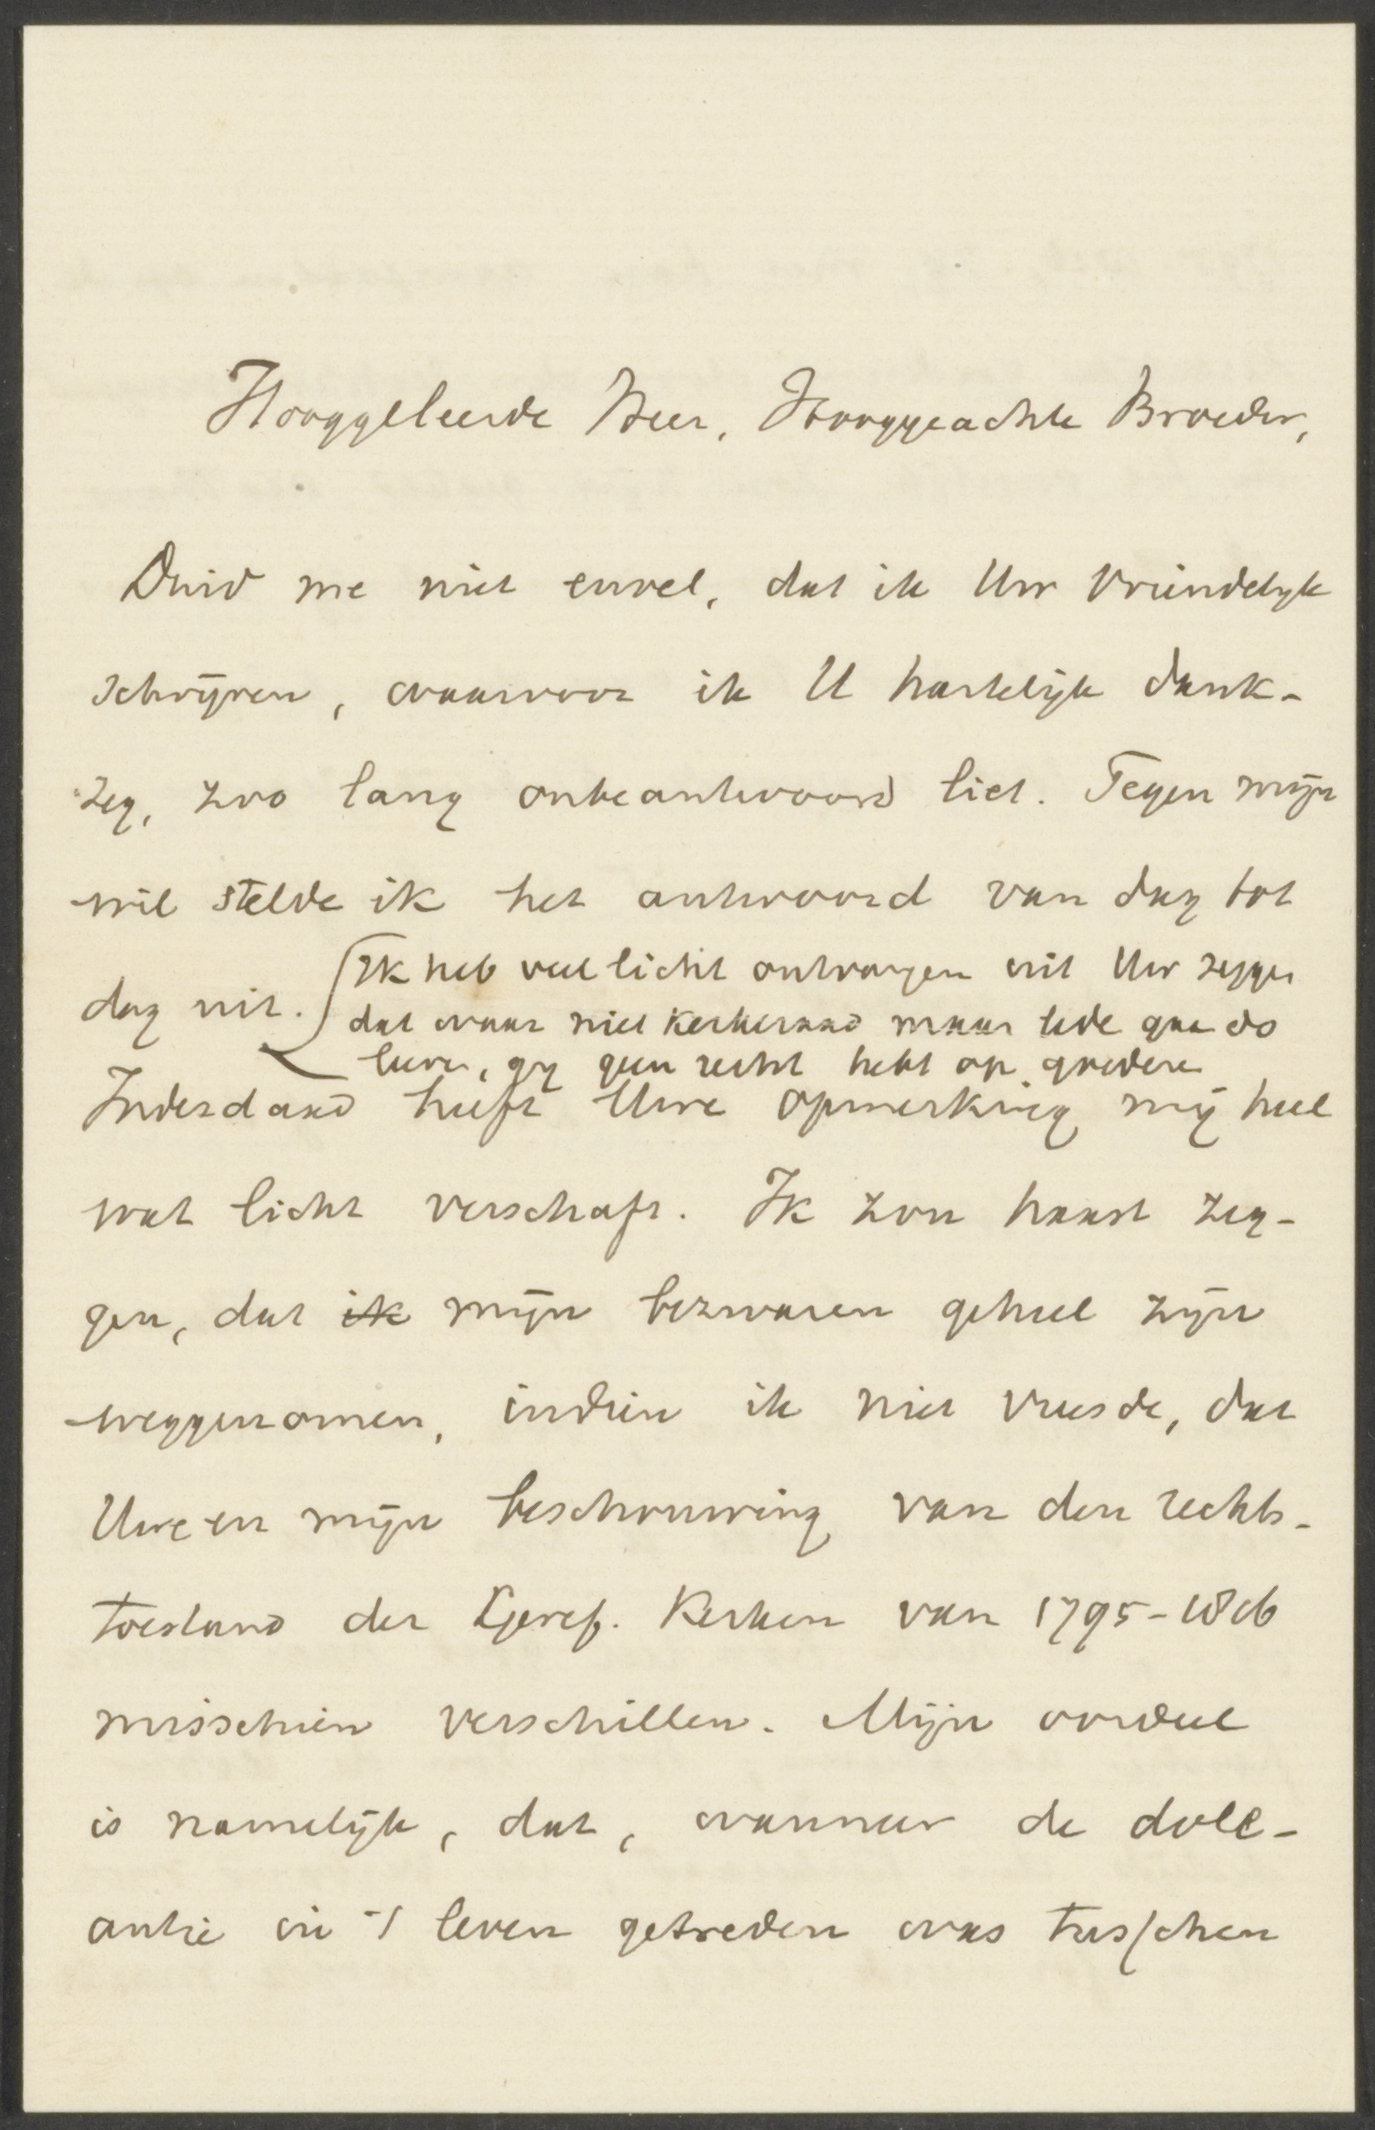 Hooggeleerde Heer, Hooggeachte Broeder,
Duid me niet euvel, dat ik Uw vriendelyk
schrijven, waarvoor ik U hartelijk dank-
zeg, zoo lang onbeantwoord liet. Tegen mijn
wil stelde ik het antwoord van dag tot
dag uit.
Ik heb veel licht ontvangen uit Uw zeggen
dat waar niet kerkeraad maar lede qua do
leeren, gy geen recht hebt op goederen
Inderdaad heeft Uwe opmerking mij heel
wat licht verschaft. Ik zou haast zeg-
gen, dat ik mijn bezwaren geheel zijn
weggenomen, indien ik niet vreesde, dat
Uwe en mijn beschouwing van den rechts-
toestand der Geref. Kerken van 1795-1816
misschien verschillen. Mijn oordeel
is namelijk, dat, wanneer de dole-
antie in 't leven getreden was tusschen